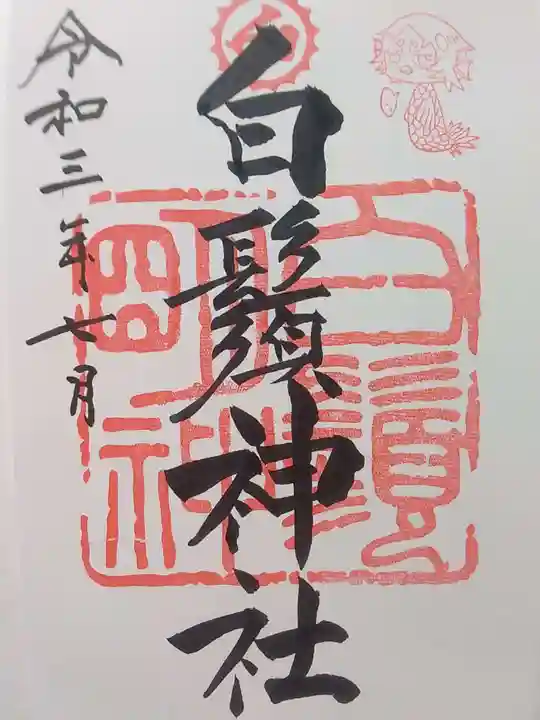 白鬚神社
令和三年七月